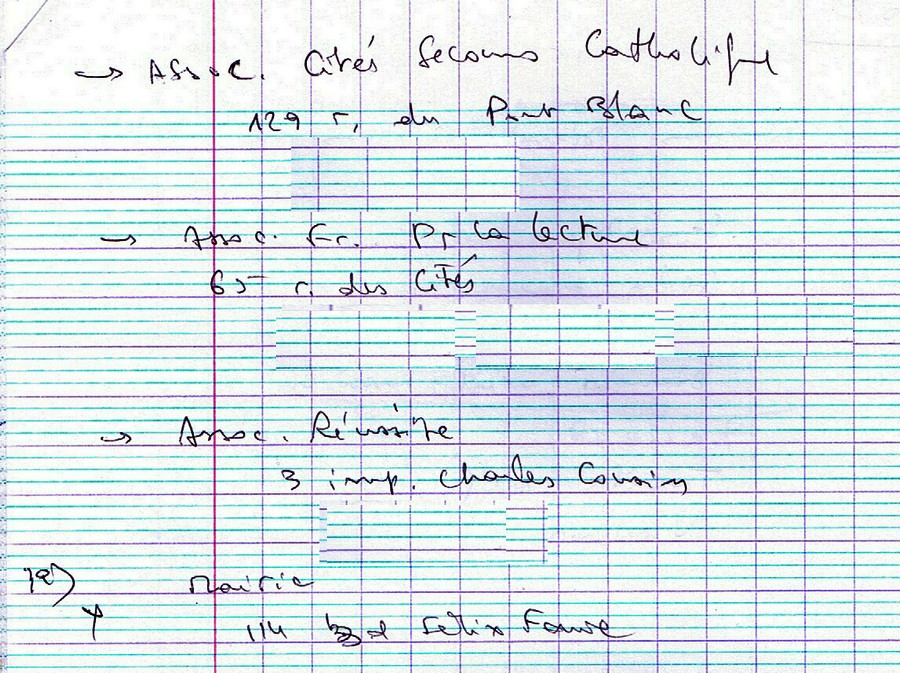 → Assoc. Cités Secours Catholique
129 r. du Pont Blanc
→ Assoc. Fr. Pr la lecture
65 r. des Cités
→ Assoc. Réussite
3 imp. Charles Cousin
Mairie
114 Bd Félix Faure